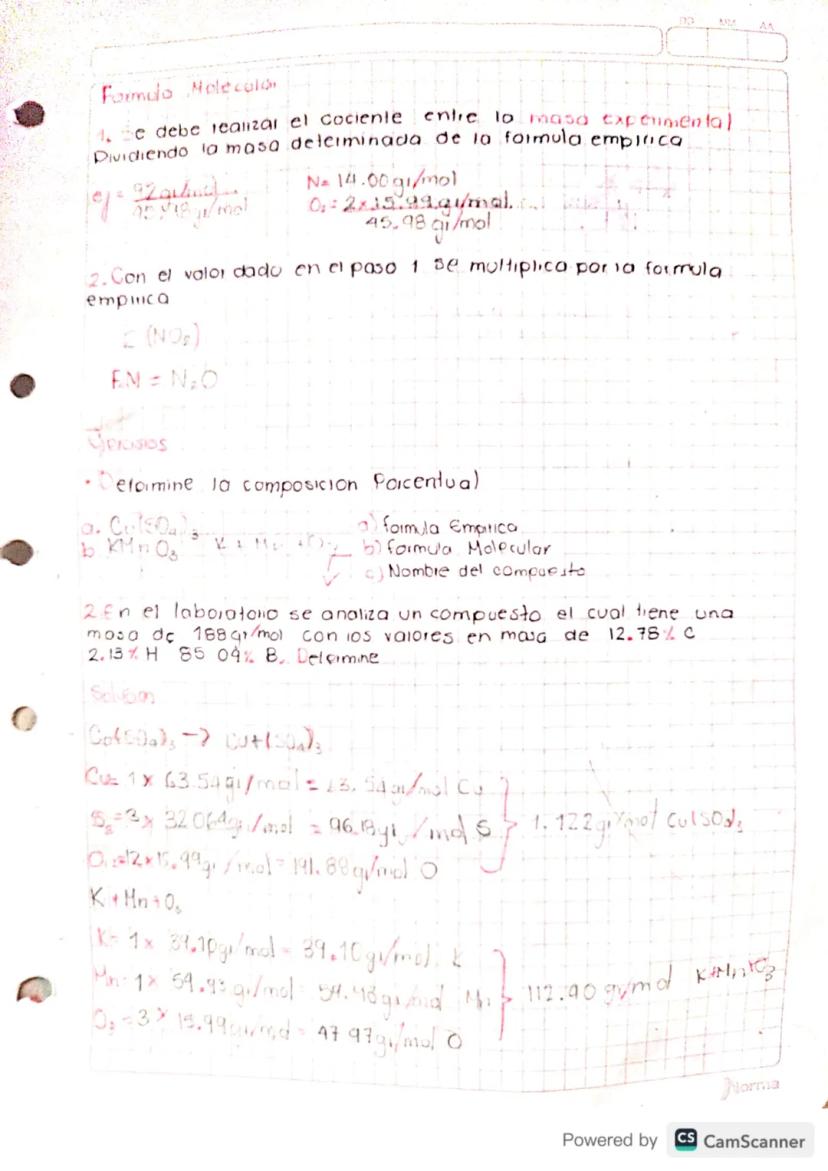 DD MM AA
Formula Molecular
1. Se debe realizar el cociente entre la masa experimental
Dividiendo la masa determinada de la formula empirica
ej = 92 gr/mol N= 14.00gr/mol
45.98 gr/mol O₂ = 2x15.99gr/mol
45.98 gr/mol
2. Con el valor dado en el paso 1 se multiplica por la formula
empirica
2 (NO₂)
F.M = N₂O
Ejercisios
• Determine la composicion Porcentual
a. Cu(SO₄)₃ a) formula Empirica
b KMnO₃ b) formula Molecular
c) Nombre del compuesto
2. En el laboratorio se analiza un compuesto el cual tiene una
masa de 188gr/mol con los valores en masa de 12.78% C
2.13% H 85 04% B. Determine
Solucion
Cu(SO₄)₃ -> Cu+(SO₄)₃
Cu= 1 x 63.54gr/mol = 63.54gr/mol Cu
S₃=3x 32 064gr/mol = 96.18gr/mol S 1.122gr/mol Cu(SO₄)₃
O₁₂=12x15.99gr/mol = 191.88gr/mol O
K+Mn+O₃
K= 1x 39.10gr/mol = 39.10gr/mol K
Mn= 1x 54.93gr/mol = Mn 112.90 gr/mol
O₃ =3 x 15.99gr/mol = 47 97gr/mol O
Norma
Powered by CS CamScanner